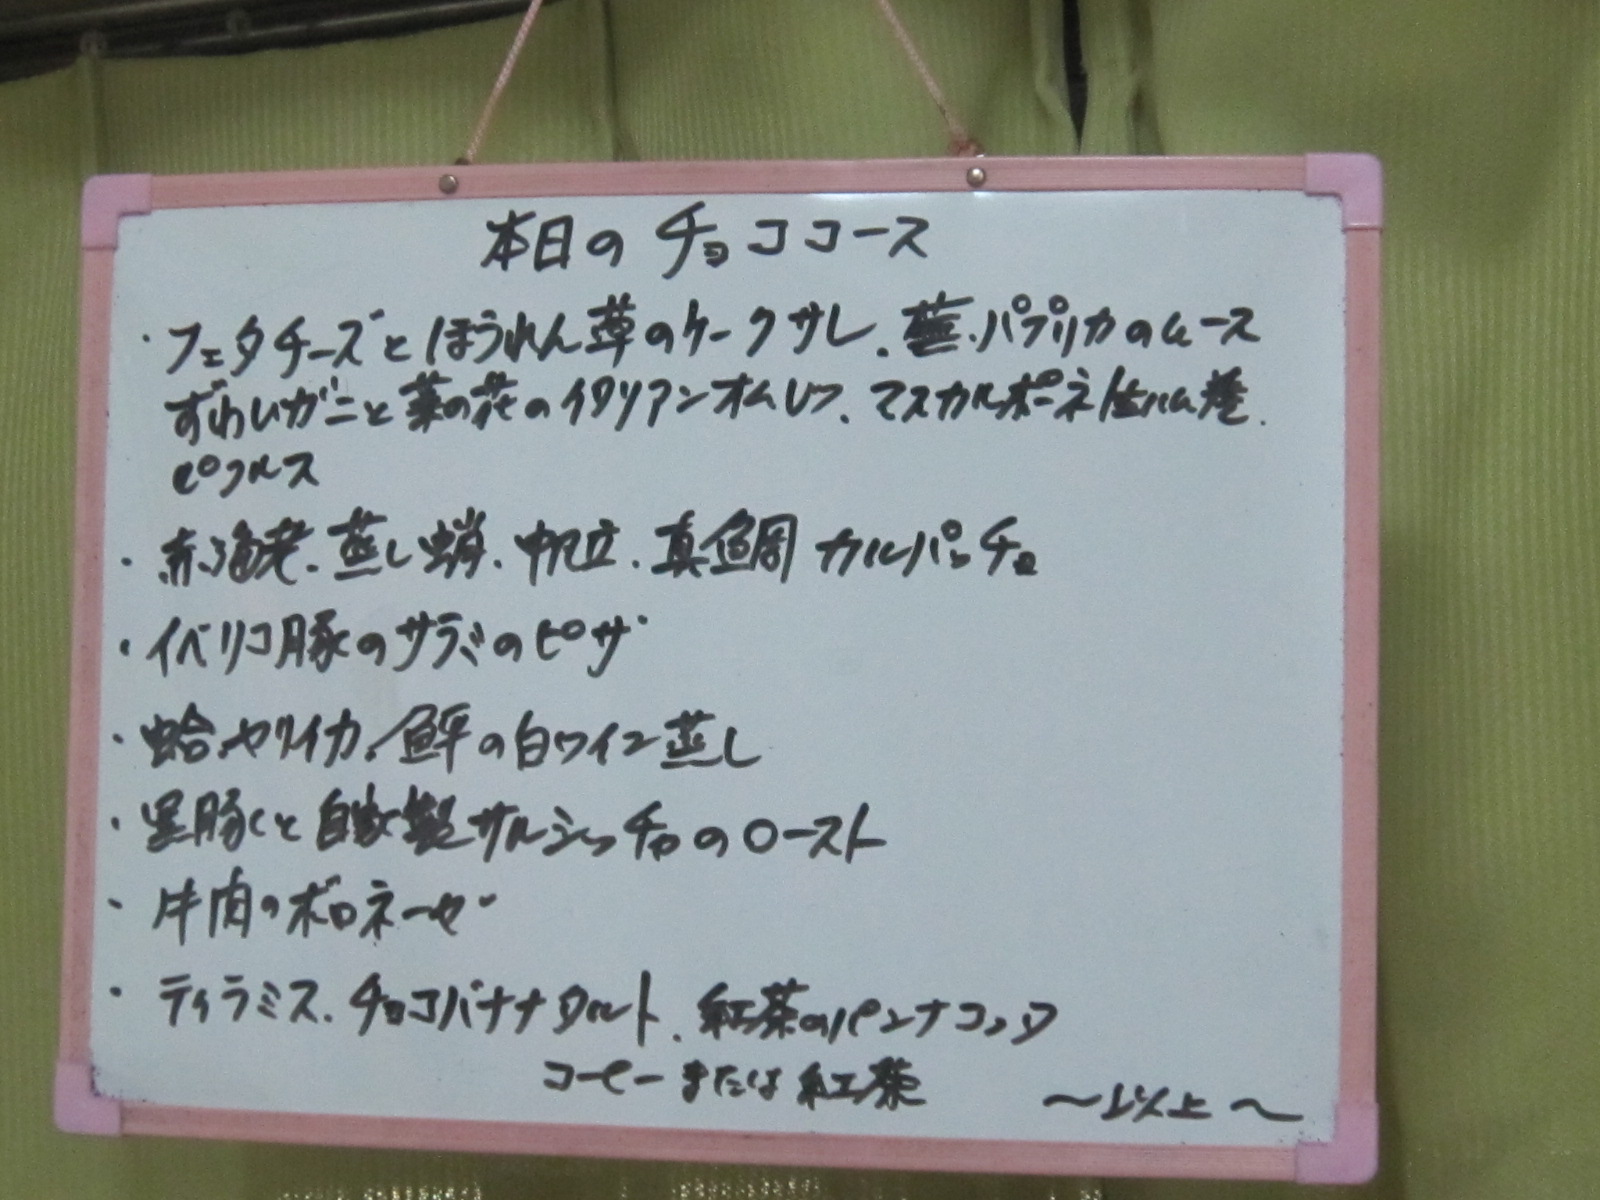 本日のチョココース
・フェタチーズとほうれん草のケークサレ、蕪、パプリカのムース
ずわいガニと菜の花のイタリアンオムレツ、マスカルポーネ生ハム巻、
ピクルス
・赤海老、蒸し蛸、帆立、真鯛カルパッチョ
・イベリコ豚のサラミのピザ
・蛤、ヤリイカ、鮃の白ワイン蒸し
・黒豚くと自家製サルシッチャのロースト
・牛肉のボロネーゼ
・ティラミス、チョコバナナタルト、紅茶のパンナコッタ
コーヒーまたは紅茶
～以上～